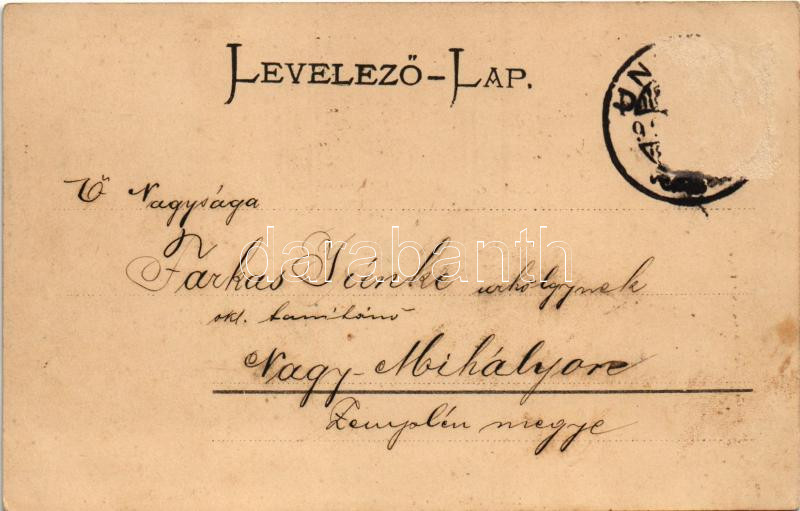 LEVELEZŐ-LAP.
UN
Ő Nagysága
Farkas Tünke urhölgynek
okl. tanitónő
Nagy-Mihályon
Zemplén megye
darabanth